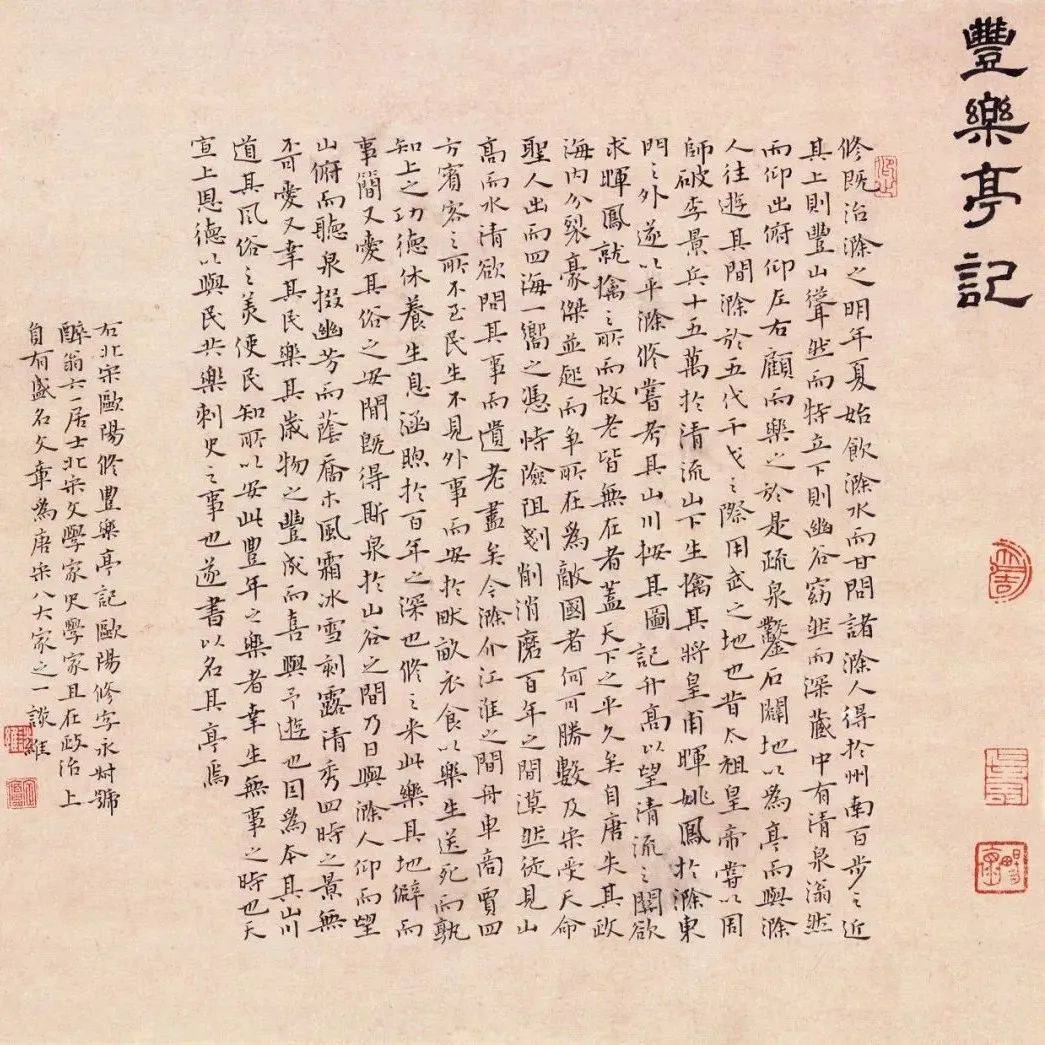 豐樂亭記
修既治滁之明年夏始飲滁水而甘問諸滁人得於州南百步之近
其上則豐山聳然而特立下則幽谷窈然而深藏中有清泉滃然
而仰出俯仰左右顧而樂之於是疏泉鑿石闢地以為亭而與滁
人往遊其間滁於五代干戈之際用武之地也昔太祖皇帝嘗以周
師破李景兵十五萬於清流山下生擒其將皇甫暉姚鳳於滁東
門之外遂以平滁修嘗考其山川按其圖記升高以望清流之關欲
求暉鳳就擒之所而故老皆無在者蓋天下之平久矣自唐失其政
海內分裂豪傑並起而爭所在為敵國者何可勝數及宋受天命
聖人出而四海一嚮之憑恃險阻剗削消磨百年之間漠然徒見山
高而水清欲問其事而遺老盡矣今滁介江淮之間舟車商賈四
方賓客之所不至民生不見外事而安於畎畝衣食以樂生送死而孰
知上之功德休養生息涵煦於百年之深也修之来此樂其地僻而
事簡又愛其俗之安閒既得斯泉於山谷之間乃日與滁人仰而望
山俯而聽泉掇幽芳而蔭喬木風霜冰雪刻露清秀四時之景無
不可愛又幸其民樂其歲物之豐成而喜與予遊也因為本其山川
道其風俗之美使民知所以安此豐年之樂者幸生無事之時也夫
宣上恩德以與民共樂刺史之事也遂書以名其亭焉
右北宋歐陽修豐樂亭記歐陽修字永叔號
醉翁六一居士北宋文學家史學家且在政治上
自有盛名文章為唐宋八大家之一 維